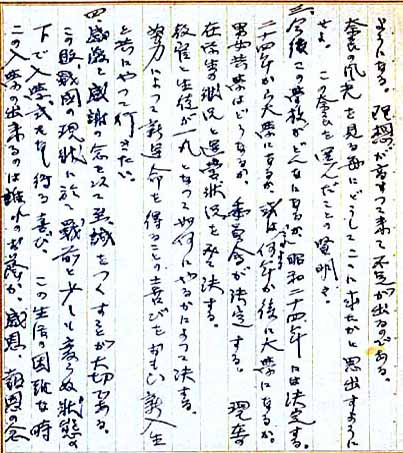 さうになる。理想が高すぎて来て不足が出るのである。
奈良の風光を見る毎にどうしてここに来たかと思出すように
せよ。この奈良を選んだことの賢明さ。
三、今後この学校がどんなになるか 昭和二十四年には決定する。
二十四年から大学になるか、或は何年か後に大学になるか。
男女共学はどうなるか。委員会が決定する。現在の
在学生の状況と運営状況をみて決する。
教官と生徒が一丸となって如何にやるかによって決する。
努力によって新運命を得ることの喜びをおもい新入生
と共にやって行きたい。
四、感激と感謝の念を以て意識をつくすことが大切である。
この敗戦国の現状に於て戦前と少しも変らぬ状態の
下で入学式をなし得る喜び、この生活の困難な時
この入学の出来るのは誰れのお蔭か、感恩、報恩の念